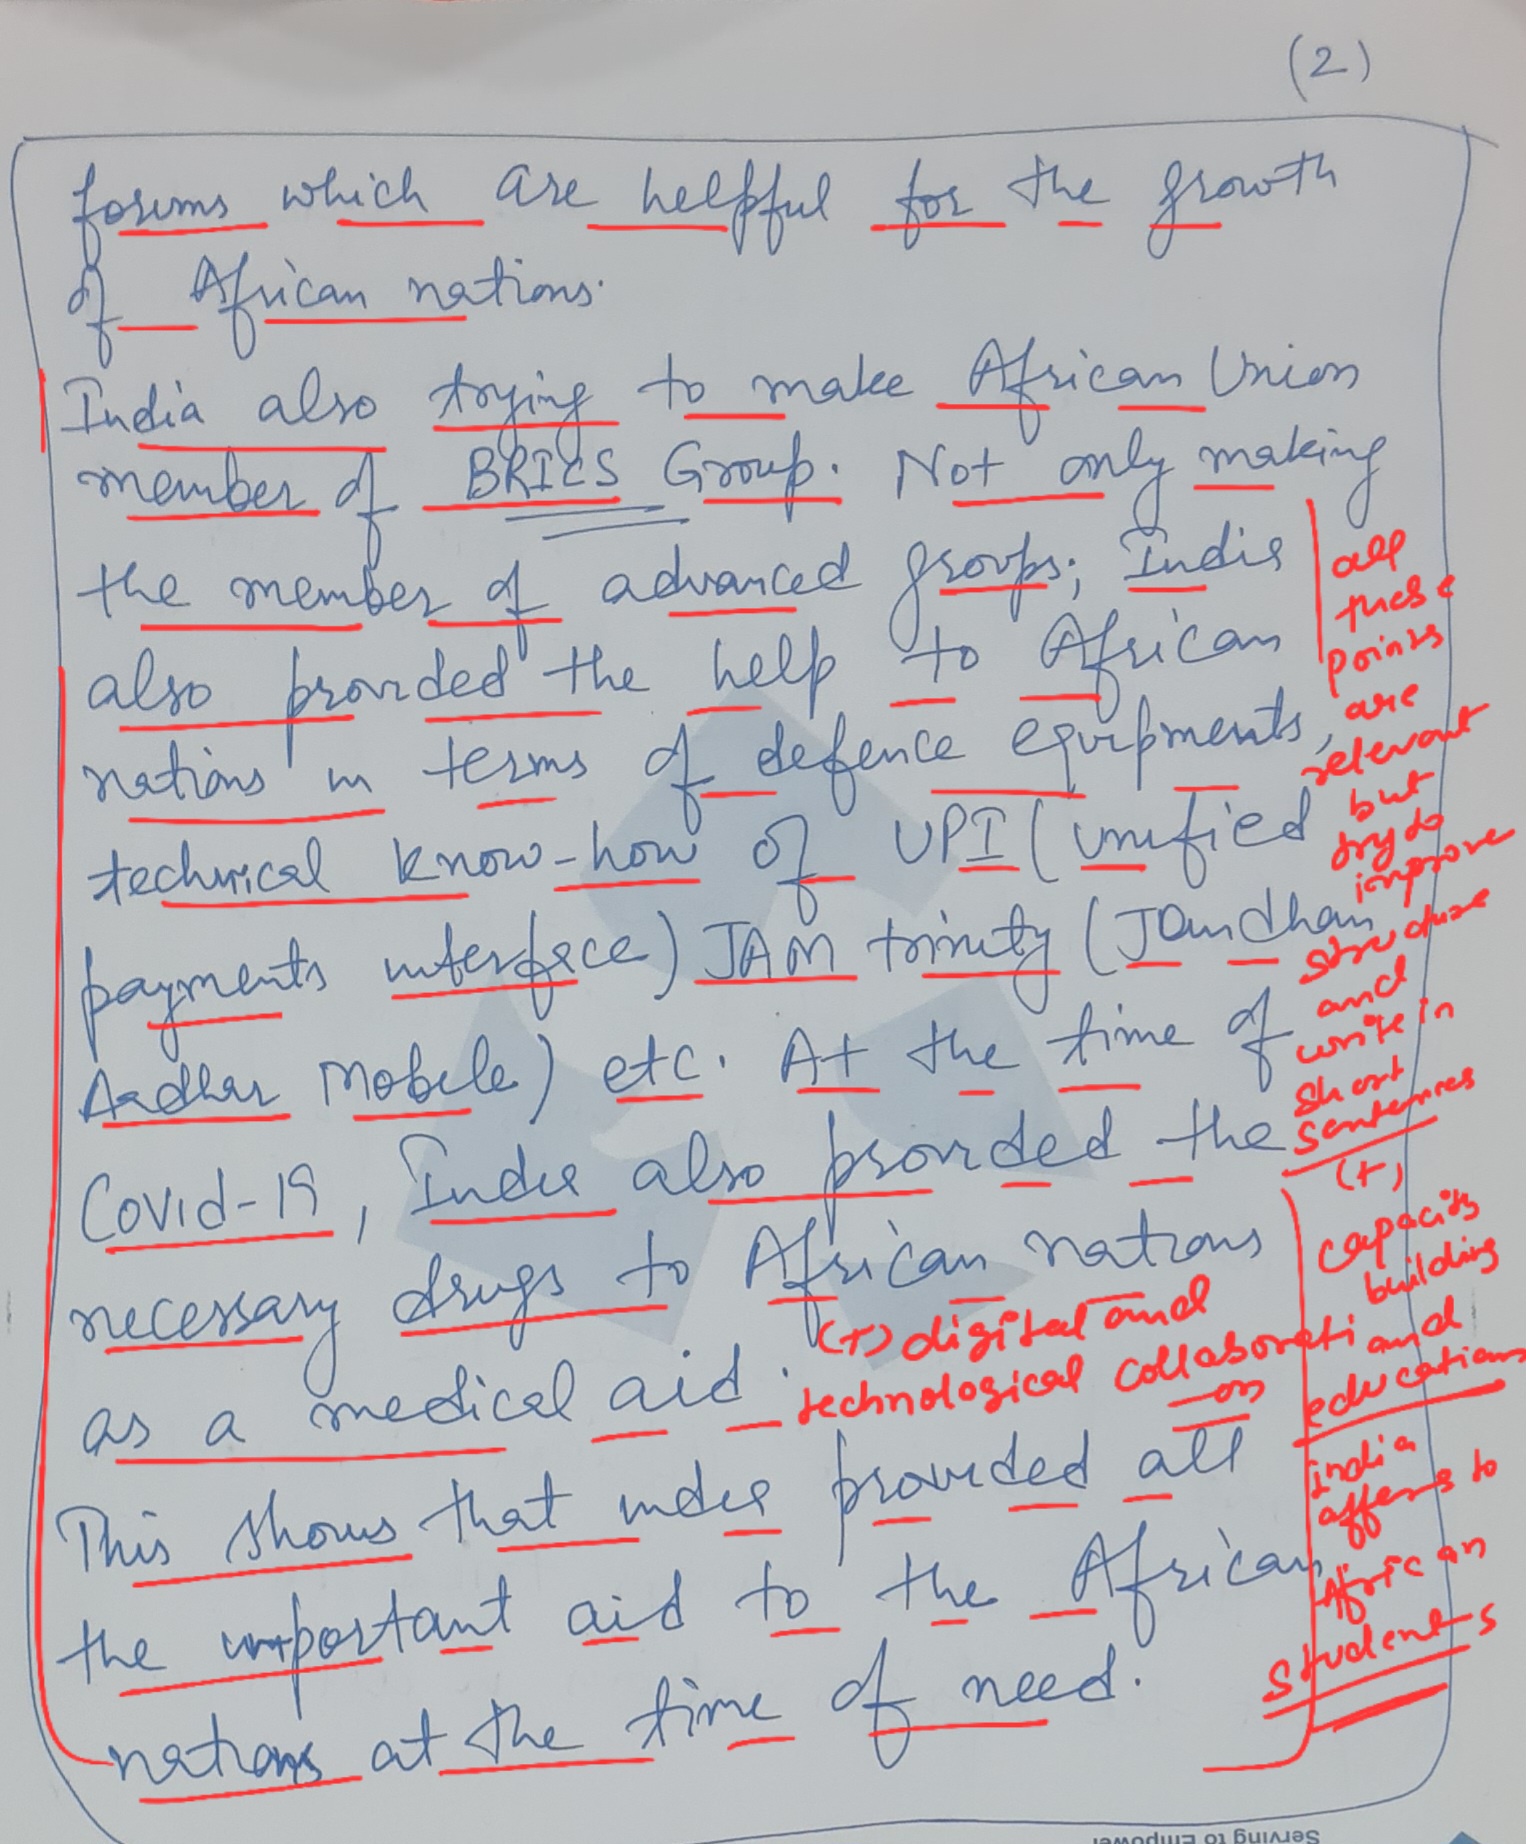 (2)
forums which are helpful for the growth
of African nations.
India also trying to make African Union
member of BRICS Group. Not only making
the member of advanced groups; India
also provided the help to African
nations in terms of defence equipments,
technical know-how of UPI (unified
payments interface) JAM trinity (Jandhan
Aadhar Mobile) etc. At the time of
Covid-19, India also provided the
necessary drugs to African nations
as a medical aid.
This shows that india provided all
the important aid to the African
nations at the time of need.
all
these
points
are
relevant
but
try to
improve
structure
and
write in
short
sentences
(+)
capacity
building
and
educations
india
offers to
African
students
(+) digital and
technological collaborati
on
Serving to Empower